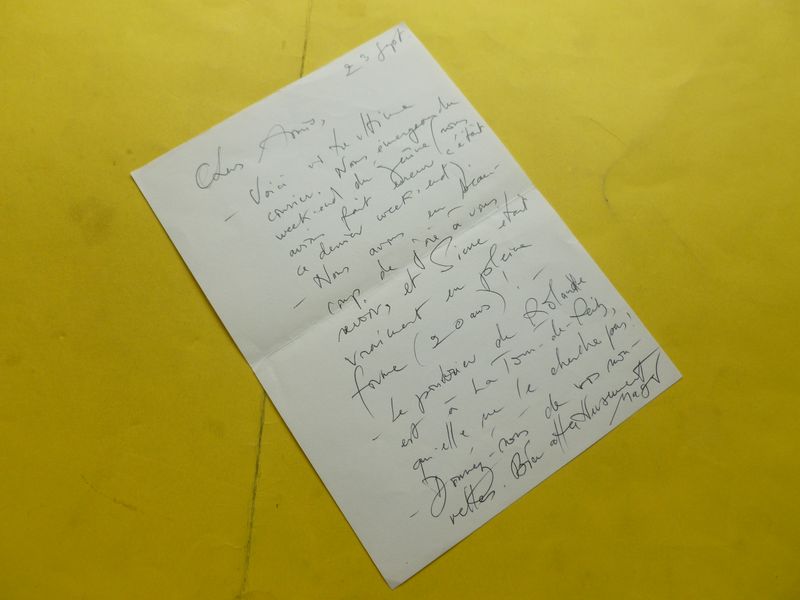 23 Sept
Chers Amis,
- Voici votre ultime
courrier. Nous émergeons du
week-end du Jeûne (nous
avions fait erreur c'était
ce dernier week-end).
- Nous avons eu beau-
coup de joie à vous
revoir, et Pierre était
vraiment en pleine
forme (20 ans)! -
- Le poudrier de Rolande
est à La Tour-de-Peilz,
qu'elle ne le cherche pas!
- Donnez-nous de vos nou-
velles. Bien affectueusement